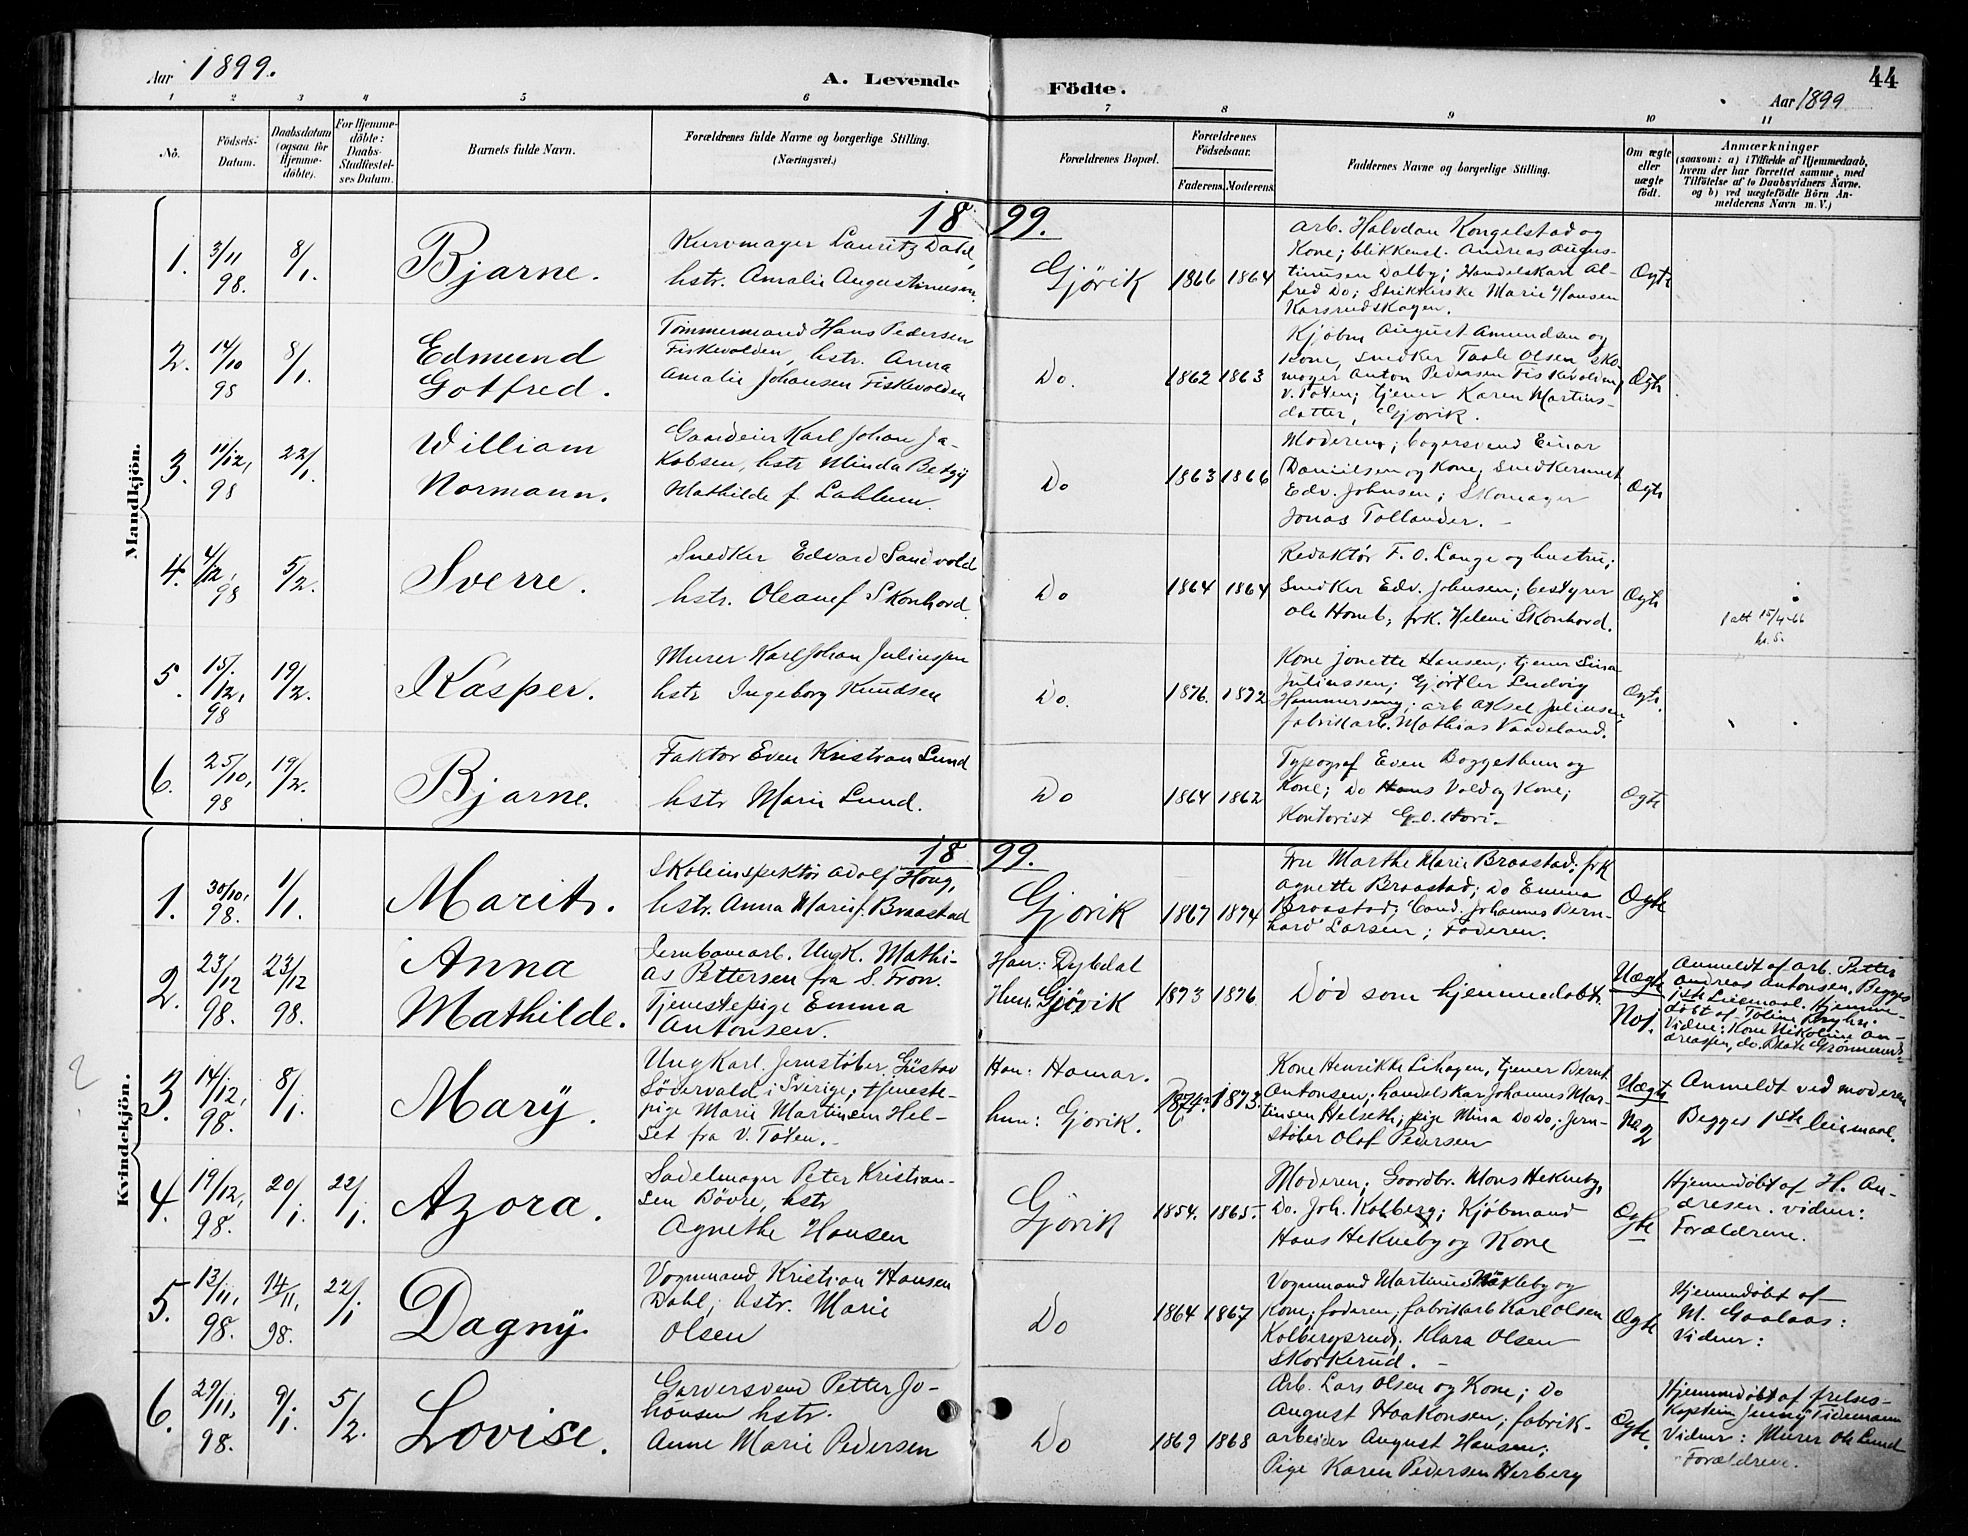 Aar 1899.
A. Levende Födte.
44
Aar 1899
1 2 3 4 5 6 7 8 9 10 11
No.
Födsels-Datum.
Daabsdatum (ogsaa for Hjemme-döbte).
For Hjemme-döbte: Daabs-Stadfæstel-ses Datum.
Barnets fulde Navn.
Forældrenes fulde Navne og borgerlige Stilling. (Næringsvei.)
Forældrenes Bopæl.
Forældrenes Födselsaar.
Faderens. Moderens.
Faddernes Navne og borgerlige Stilling.
Om ægte eller uægte födt.
Anmærkninger
(saasom: a) i Tilfælde af Hjemmedaab,
hvem der har forrettet samme, med
Tilföielse af to Daabsvidners Navne.
og b) ved uægtefödte Börn An-
melderens Navn m. V.)
Mandkjön.
1899.
1. 3/11 98. 8/1. Bjarne.
Kurvmager Lauritz Dahl,
hstr. Amalie Augustinusen.
Gjörik 1866 1864
Arb. Halvdan Kongelstad og
Kone; blikkensl. Andreas Augus-
tinusen Dalby; Handelskarl Al-
fred Do; Strikkerske Marie Hansen
Karsrudskogen.
Ægte
2. 14/10 98 8/1. Edmund
Gotfred.
Tömmermand Hans Pedersen
Fiskevolden, hstr. Anna
Amalie Johansen Fiskevolden
Do. 1862 1863
Kjöbm August Amundsen og
Kone, Snedker Taale Olsen Sko-
mager Anton Pedersen Fiskvolden
V. Toten; tjener Karen Martins-
datter, Gjörik.
Ægte
3. 11/12, 98 22/1. William
Normann.
Gaardeier Karl Johan Ja-
kobsen, hstr Minda Betzy
Mathilde f. Lahlum.
Do 1863 1866
Moderen; bagersvend Einar
Danielsen og Kone; Snedkermest
Edv. Johnsen; Skomager
Jonas Tollander. -
Ægte
4. 4/12, 98 5/2. Sverre.
Snedker Edvard Sandvold
hstr. Oleane f Skonhord.
Do 1864 1864
Redaktör F. O. Lange og hustru;
Snedker Edv. Johnsen; bestyrer
Ole Homb; frk. Helene Skonhord.
Ægte
1 att 15/4-66
5. 15/12, 98 19/2. Kasper.
Murer Karl Johan Juliussen
hstr Ingeborg Knudsen
Do. 1876. 1872
Kone Jonette Hansen; tjener Sina
Juliussen; Gjörtler Ludvig
Hammerseng; arb Aksel Juliusen
fabrikarb. Mathias Vaadeland.
Ægte.
6. 25/10, 98 19/2. Bjarne.
Faktor Even Kristian Lund
hstr Marie Lund.
Do 1864 1862
Typograf Even Boggethun og
Kone; Do Hans Vold og Kone;
Kontorist G. O. Hovi -
Ægte
Kvindekjön.
1899.
1. 30/10, 98. 1/1. Marit.
Skoleinspektör Adolf Houg,
hstr. Anna Marie f. Braastad
Gjörik 1867 1874
Fru Marthe Marie Braastad; frk
Agnette Braastad; Do Emma
Braastad; Cand. Johannes Bern-
hard Larsen; Faderen.
Ægte
2. 23/12 98. 23/12 98. Anna
Mathilde.
Jernbanearb. Ungk. Mathi-
as Pettersen fra S. Fron.
Tjenestepige Emma
Antonsen.
Han: Dybdal
Hun: Gjövik 1873 1876.
Död som hjemmedöbt.
Uægte
No 1.
Anmeldt af arb. Petter
Andreas Antonsen, Begges
1ste Leiermaal. Hjemme-
döbt af Toline
Vidner: Kone Nikoline An-
dreassen, do. Beate
3. 14/12, 98. 8/1. Mary.
Ungkarl Jernstöber Gustav
Södervald i Sverige; tjeneste-
pige Marie Martinsen Hel-
set fra V. Toten. -
Han: Hamar.
hun: Gjörik. 1873.
Kone Henrikke Lihagen, tjener Bernt
Antonsen; handelskar Johannes Mar-
tinsen Helseth; pige Mina Do Do; Jern-
stöber Olof Pedersen
Uægte
No 2
Anmeldt ved moderen
Begges 1ste leiermaal.
4. 19/12, 98. 20/1. 22/1. Azora.
Sadelmager Peter Kristian-
sen Bövre, hstr
Agnethe Hansen
Gjörik 1854. 1865.
Moderen; Gaardbr. Mons Hekneby,
Do. Joh. Kolberg; Kjöbmand
Hans Hekneby og Kone
Ægte
Hjemmedöbt af H. An-
dresen. vidner:
Forældrene.
5. 13/11, 98. 14/11, 98. 22/1 Dagny.
Vognmand Kristian Hansen
Dahl; hstr. Marie
Olsen
Do 1864 1867
Vognmand Martinus Häkleby og
Kone; faderen; fabrikarb Karl Olsen
Kolbergsrud; Klara Olsen
Skorkerud. -
Ægte
Hjemmedöbt af
M. Gaalaas:
Vidner:
6. 29/11, 98. 9/1. 5/2. Lovise.
Garversvend Petter Jo-
hansen hstr.
Anne Marie Pedersen
Do 1869 1868
Arb. Lars Olsen og Kone; Do
August Haakonsen; fabrik-
arbeider August Hansen;
Pige Karen Pedersen Herberg
Ægte.
Hjemmedöbt af frelses-
Kaptein Jenny Tidemann
Vidner: Murer Ole Lund
Forældrene.